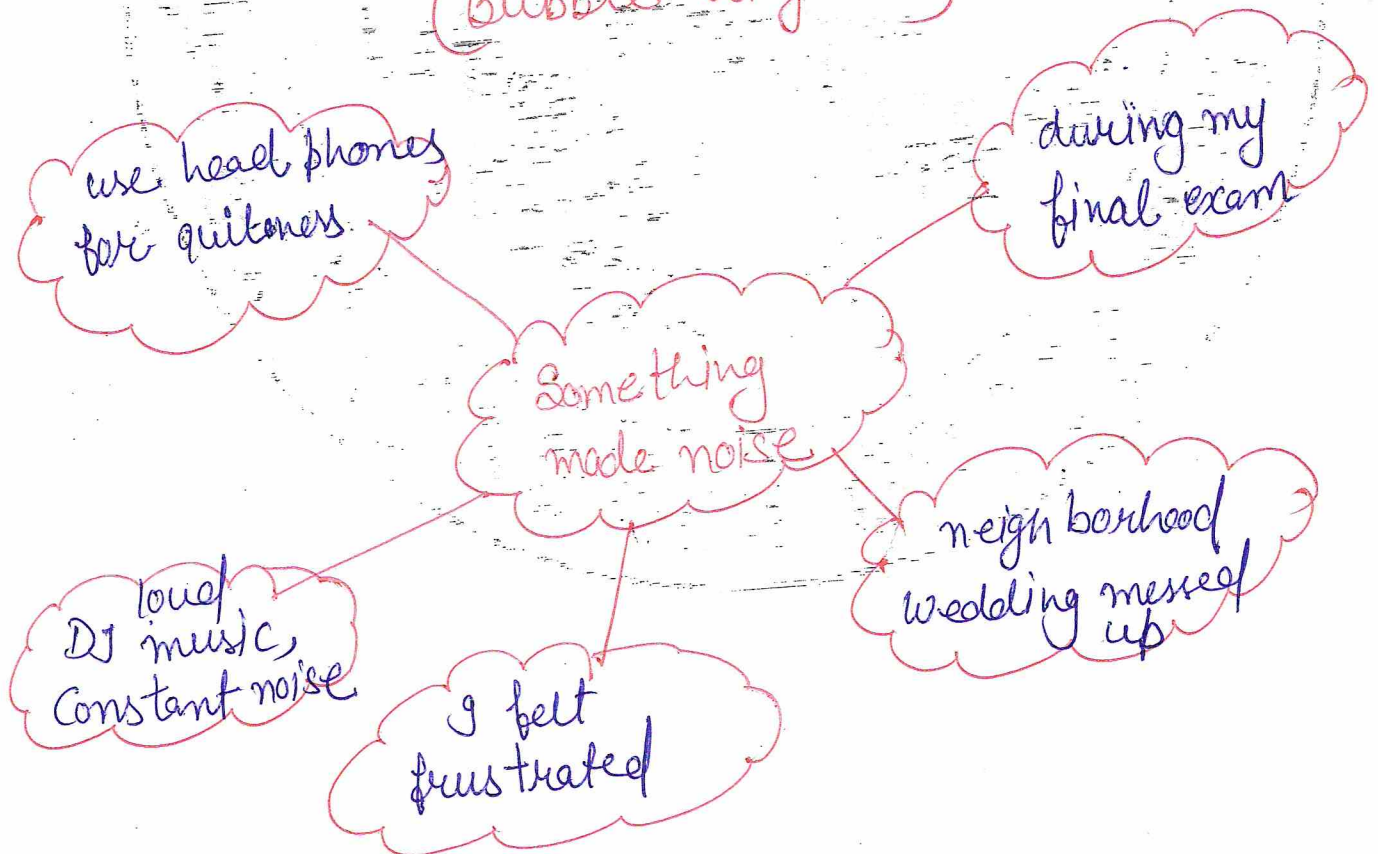 (bubble
use head phones
for quiteness.
during my
final exam
Something
made noise
neighborhood
wedding messed
up
loud
DJ music,
Constant noise
I felt
frustrated